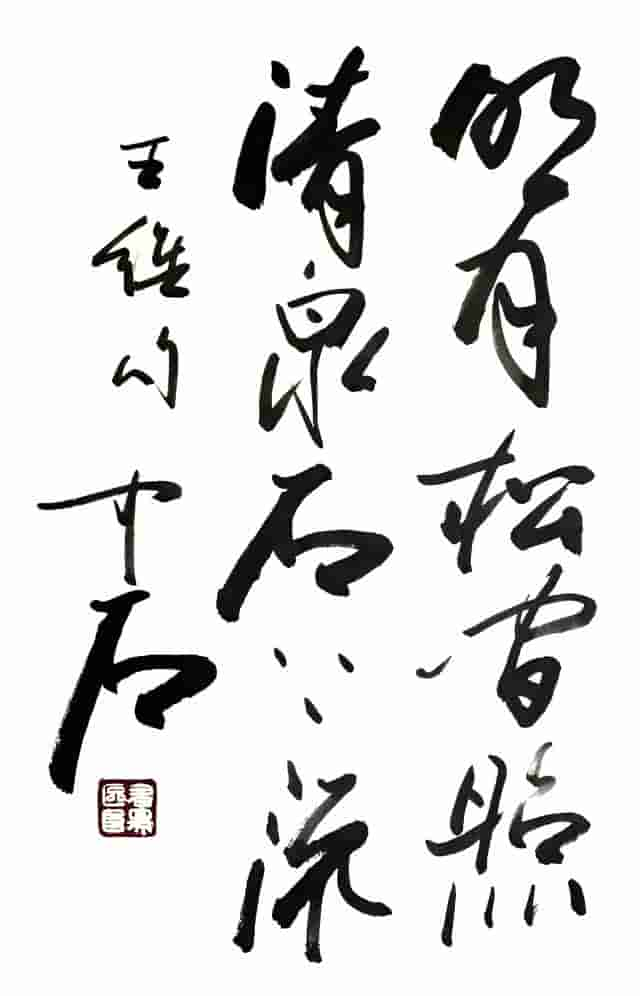 明月松間照
清泉石上流
王維句
中石